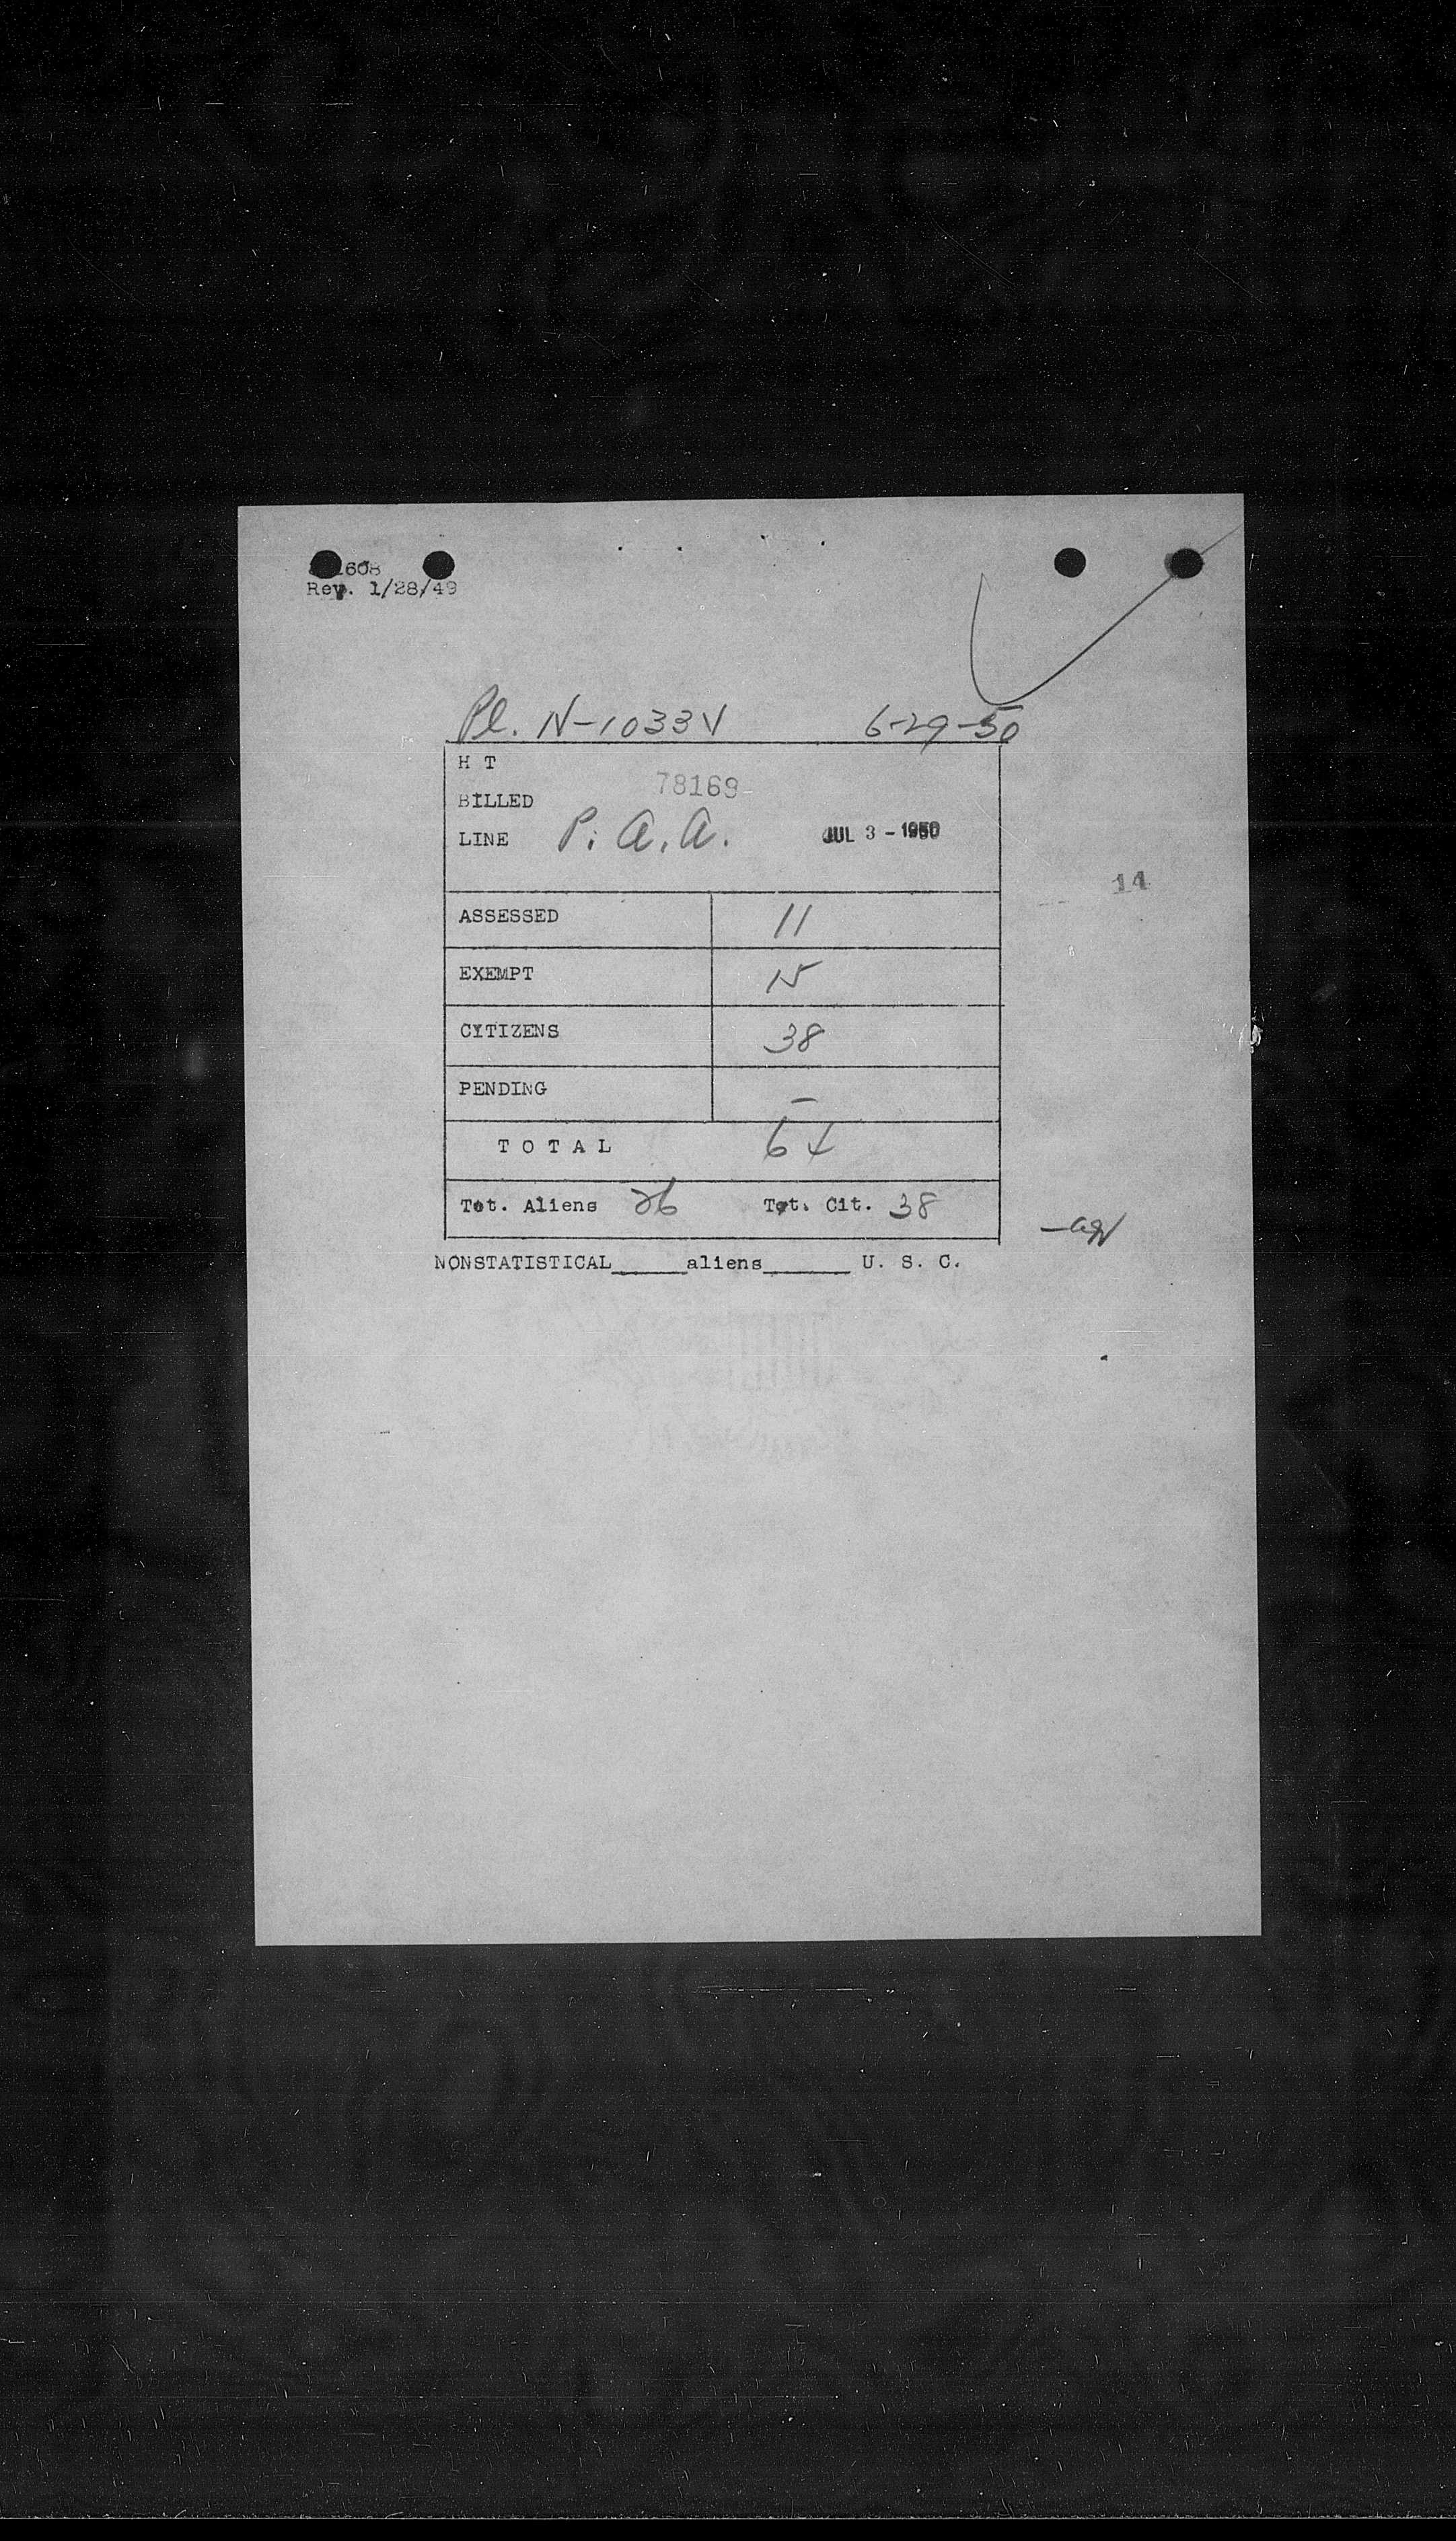 1608
Rev. 1/28/49
Pl. N-1033V 6-29-50
H T
BILLED 78169
LINE P. A. A. JUL 3 - 1950
14
ASSESSED 11
EXEMPT 15
CITIZENS 38
PENDING –
T O T A L 64
Tot. Aliens 26 Tot. Cit. 38
NONSTATISTICAL_____aliens______ U. S. C.